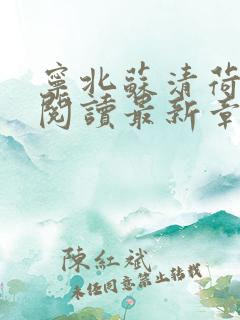 寧北蘇清荷
閱讀最新章
陳紅斌
未經同意禁止轉載